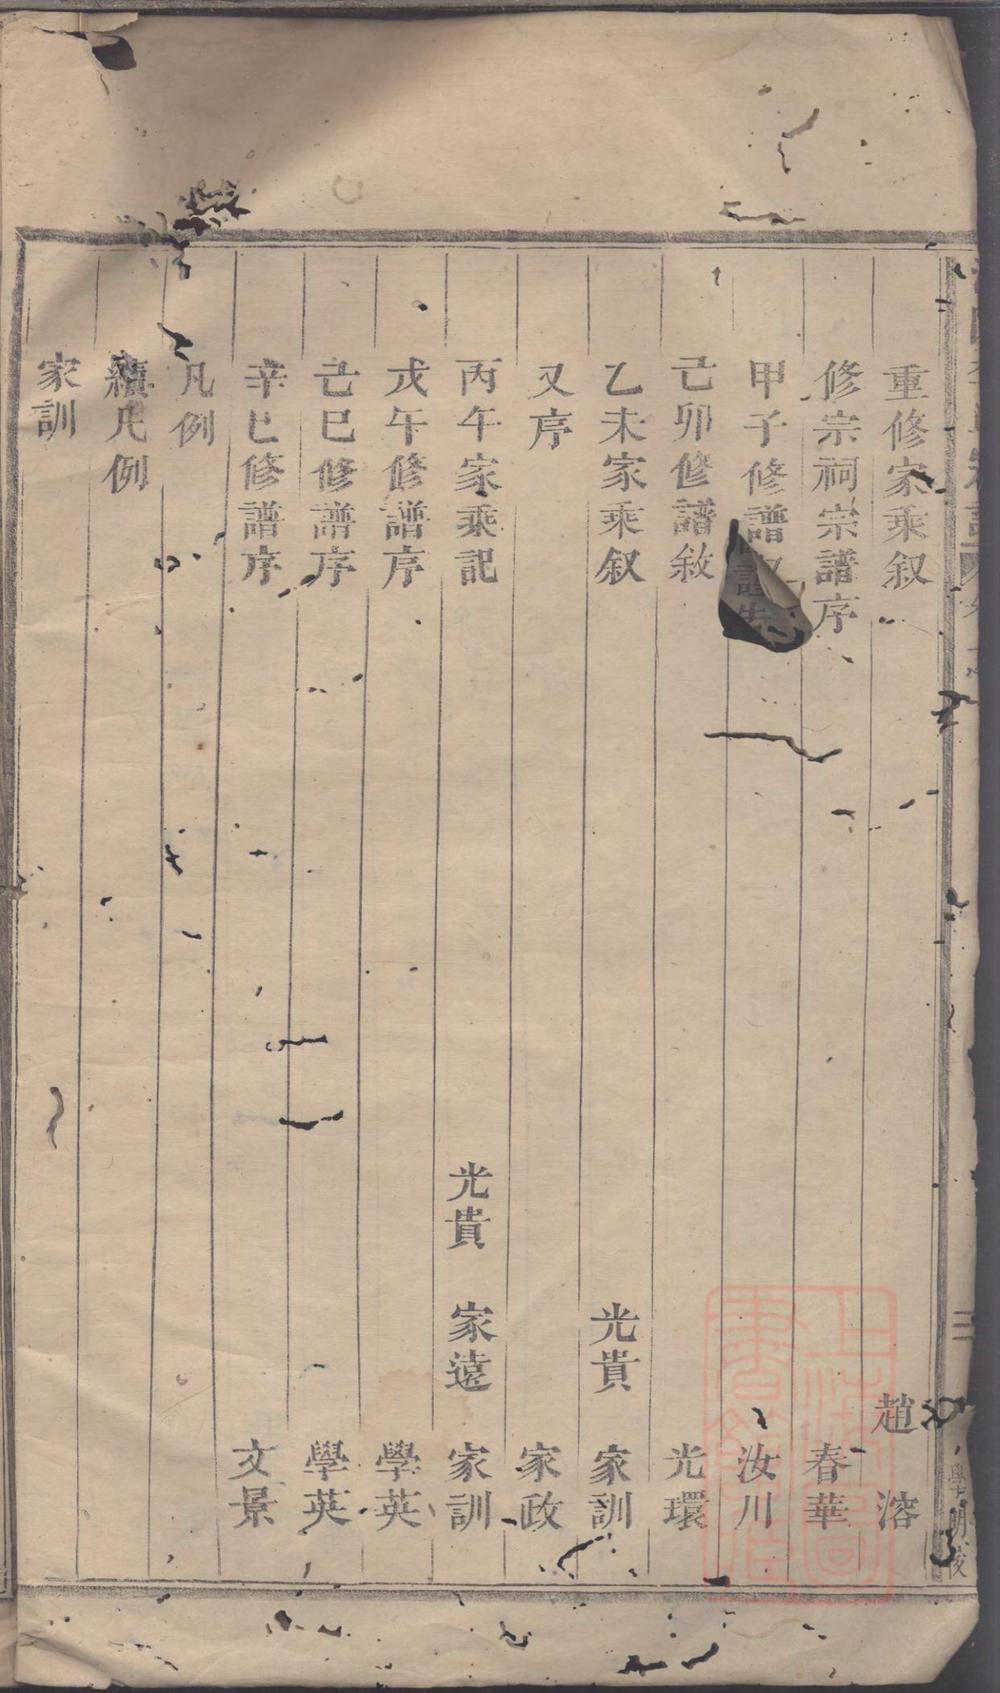 重修家乘叙 趙溶
修宗祠宗譜序 春華
甲子修譜 汝川
己卯修譜敘 光環
乙未家乘叙 光貴 家訓
又序 家政
丙午家乘記 光貴 家遠 家訓
戊午修譜序 學英
己巳修譜序 學英
辛巳修譜序 文景
凡例
續凡例
家訓